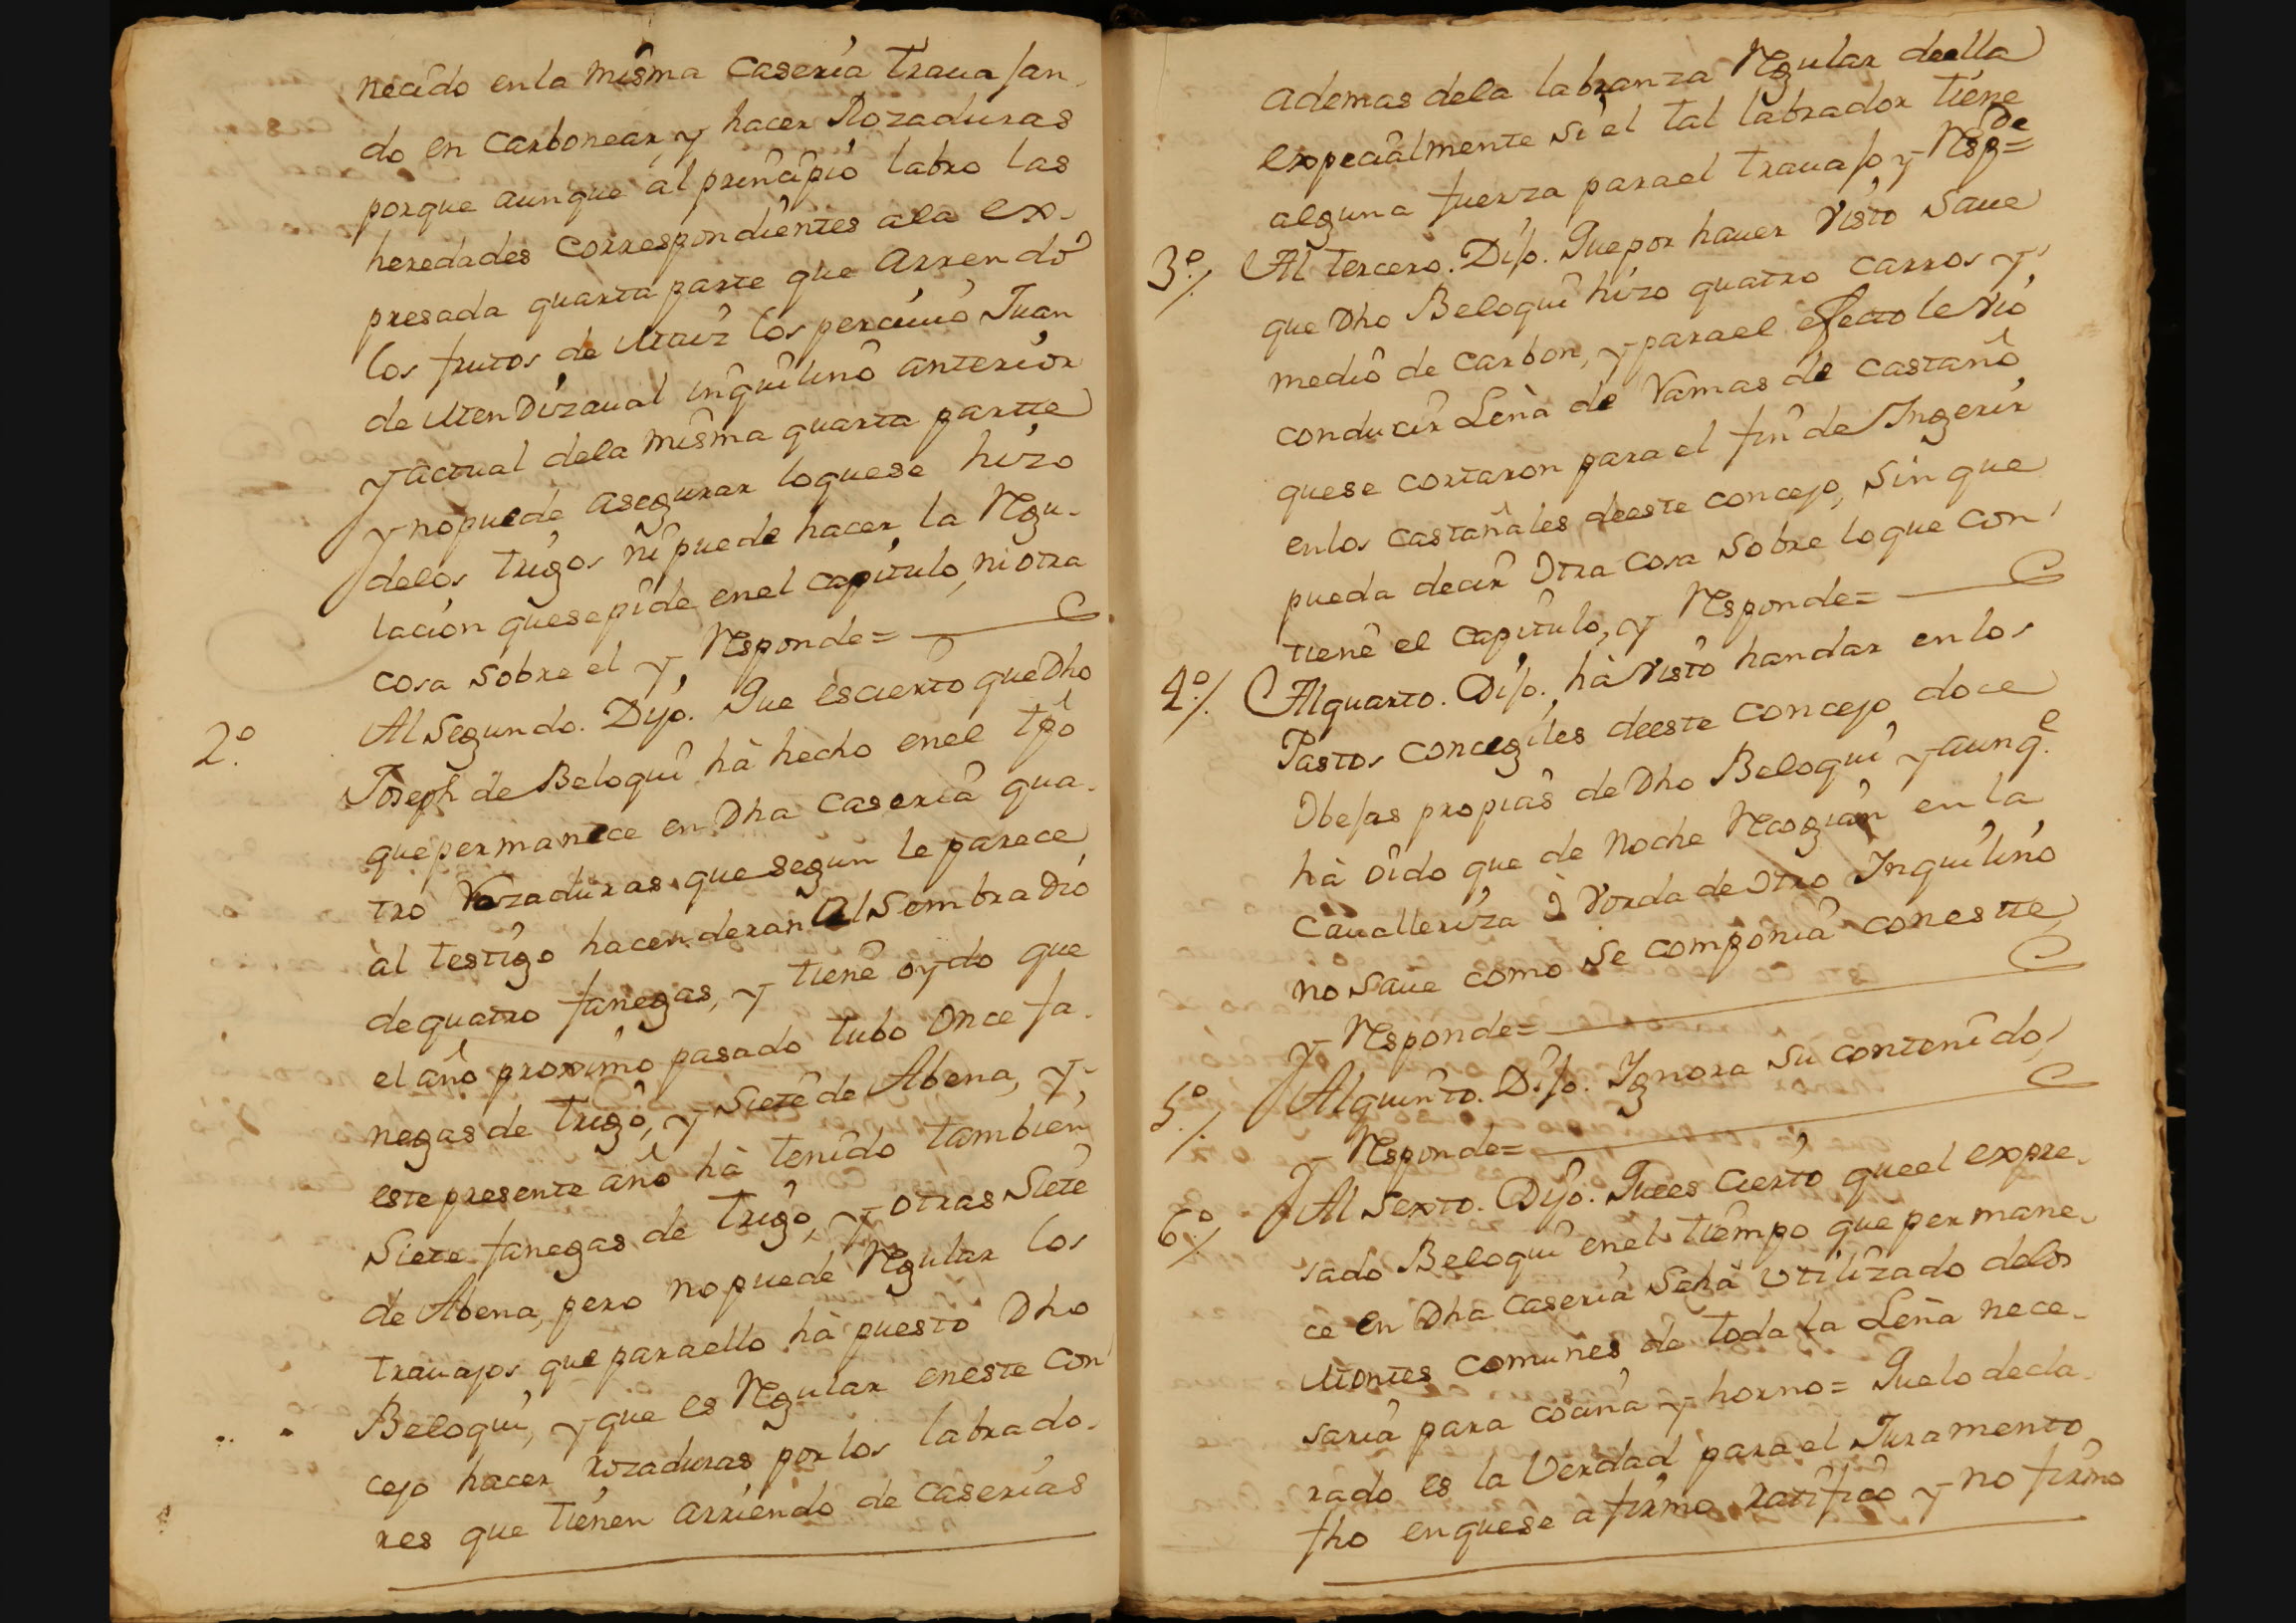 necido en la misma Caseria travajan-
do en Carbonear y hacer Rozaduras
porque aunque al principio labro las
heredades correspondientes a la ex-
presada quarta parte que Arrendó
los frutos de Maiz los percivió Juan
de Mendizaval inquilino anterior
y actual de la misma quarta partte
y no puede asegurar lo que se hizo
de los trigos ni puede hacer la Regu-
lacion que se pide en el capitulo, ni otra
cosa sobre el y Responde=
2.º Al Segundo. Dijo. Que es cierto que Dho
Joseph de Beloqui hà hecho en el tpô
que permanece en Dha Caseria qua-
tro Rozaduras que segun le parece
àl testigo hacenderan Al Sembradio
de quatro fanegas, y tiene oydo que
el año proximo pasado tubo Once fa-
negas de trigo, y Siete de Abena, y
este presente año hà tenido tambien
Siete fanegas de trigo, y otras Siete
de Abena, pero no puede Regular los
travajos que para ello hà puesto Dho
Beloqui, y que es Regular en este Con
cejo hacer rozaduras por los labrado-
res que tienen arriendo de Caserias
ademas de la labranza Regular de ella
expecialmente si el tal labrador tiene
alguna fuerza para el travajo y Respde=
3.º/. Al tercero. Dijo. Que por haver Visto Save
que Dho Beloqui hizo quatro carros y
medio de Carbon, y para el efecto le Vio
conducir Leña de Ramas de Castaño
que se cortaron para el fin de Ingerir
en los castañales de este concejo, Sin que
pueda decir Otra Cosa Sobre lo que Con
tiene el Capitulo, y Responde=
4.º/. Al quarto. Dijo. hà Visto handar en los
Pastos concegiles de este Concejo doce
Obejas propias de Dho Beloqui y aunq.e
hà oido que de Noche Recogian en la
Cavalleriza ò Borda de Otro Inquilino
no Save como se componia con estte,
y Responde=
5.º/. Al quinto. Dijo. Ignora su contenido,
y Responde=
6.º/. Al Sexto. Dijo. Que es Cierto que el expre-
sado Beloqui en el tiempo que permane-
ce en Dha Caseria Se hà Utilizado de los
Montes comunes de toda la Leña nece-
saria para cocina y horno= Que lo decla-
rado es la Verdad para el Juramento
fho en que se afirmo, ratifico y no firmo